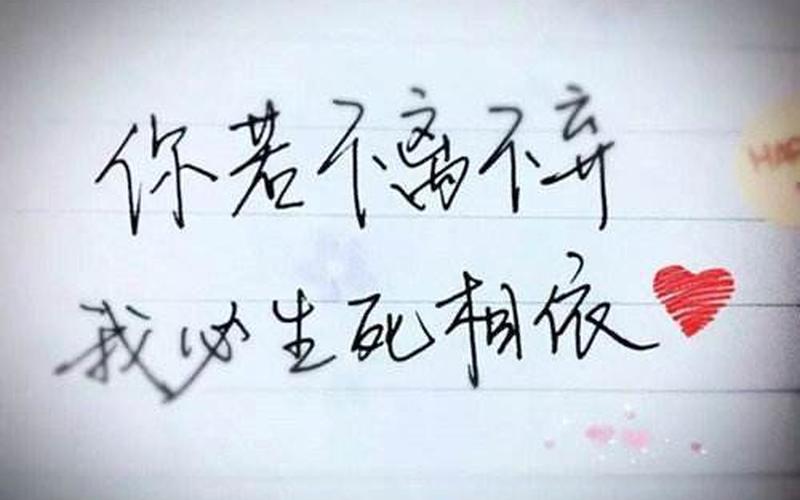 你若不离不弃
我必生死相依
HAP